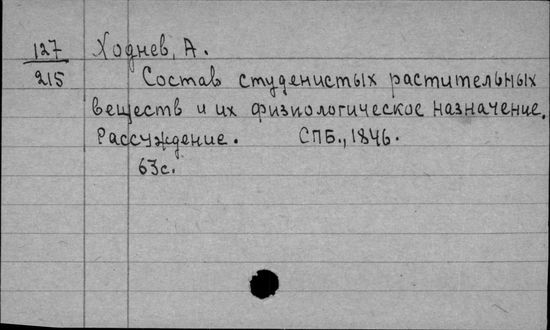 127 Ходнев, А.
215 Состав студенистых растительных
веществ и их физиологическое назначение.
Рассуждение. СПБ., 1846.
63с.